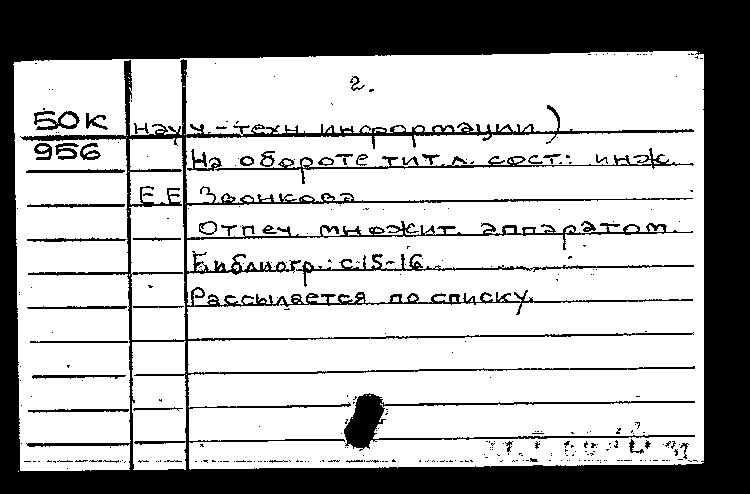 2.
БОК науч.-техн. информации).
956 На обороте тит. л. сост.: инж.
Е.Е. Звонкова
Отпеч. множит. аппаратом.
Библиогр.: с.15-16.
Рассылается по списку.